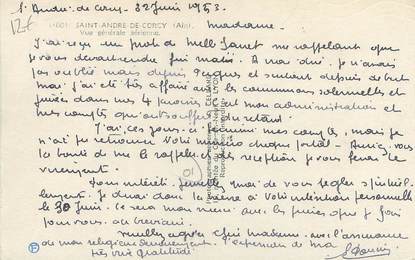 St André de Corcy 22 Juin 1953
12f
SAINT-ANDRÉ-DE-CORCY (AIN)
Vue générale aérienne.
Madame.
J'ai reçu un mot de Melle Janet me rappelant que
je vous devais fin mai. A vrai dire je n'avais
pas oublié mais depuis Pâques et surtout depuis debut
Mai j'ai été très affairé avec les communions solennelles et
privées dans mes 4 paroisses et mon administration et
mes comptes qui ont souffert du retard.
J'ai, ces jours-ci terminé mes comptes, mais je
n'ai pu retrouver votre numéro cheque postal. Auriez vous
la bonté de me le rappeler et dès reception je vous ferai le
virement.
Comme intérêt, veuillez moi de vous regler spirituel-
lement. Je dirai donc la messe à votre intention personnelle
le 30 Juin. Ce sera mon merci avec les prières que je fais
pour vous au bréviaire.
Veuillez agréer chère madame avec l'assurance
de mon religieux devouement l'expression de ma
très vive gratitude